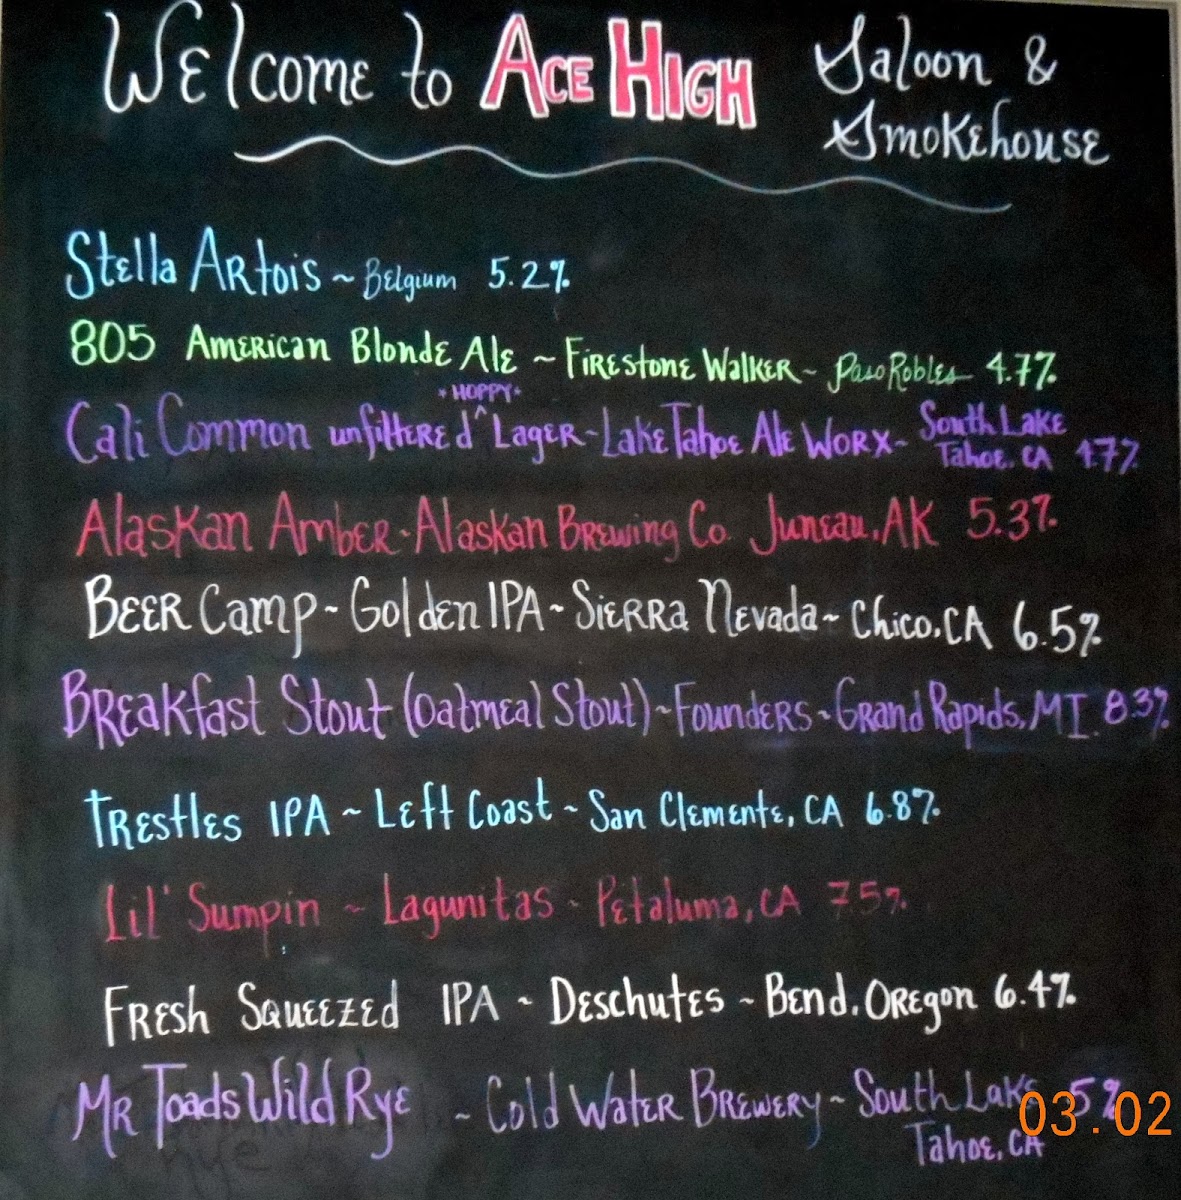 Welcome to ACE HIGH Saloon &
Smokehouse
Stella Artois ~ Belgium 5.2%
805 American Blonde Ale ~ Firestone Walker ~ Paso Robles 4.7%
*HOPPY*
Cali Common unfiltered ^ Lager ~ Lake Tahoe Ale Worx ~ South Lake
Tahoe, CA 4.7%
Alaskan Amber - Alaskan Brewing Co. Juneau, AK 5.3%
Beer Camp ~ Golden IPA ~ Sierra Nevada ~ Chico, CA 6.5%
Breakfast Stout (Oatmeal Stout) ~ Founders ~ Grand Rapids, MI. 8.3%
Trestles IPA ~ Left Coast ~ San Clemente, CA 6.8%
Lil' Sumpin ~ Lagunitas ~ Petaluma, CA 7.5%
Fresh Squeezed IPA ~ Deschutes ~ Bend, Oregon 6.4%
Mr Toads Wild Rye ~ Cold Water Brewery ~ South Lake 5%
Tahoe, CA
03.02